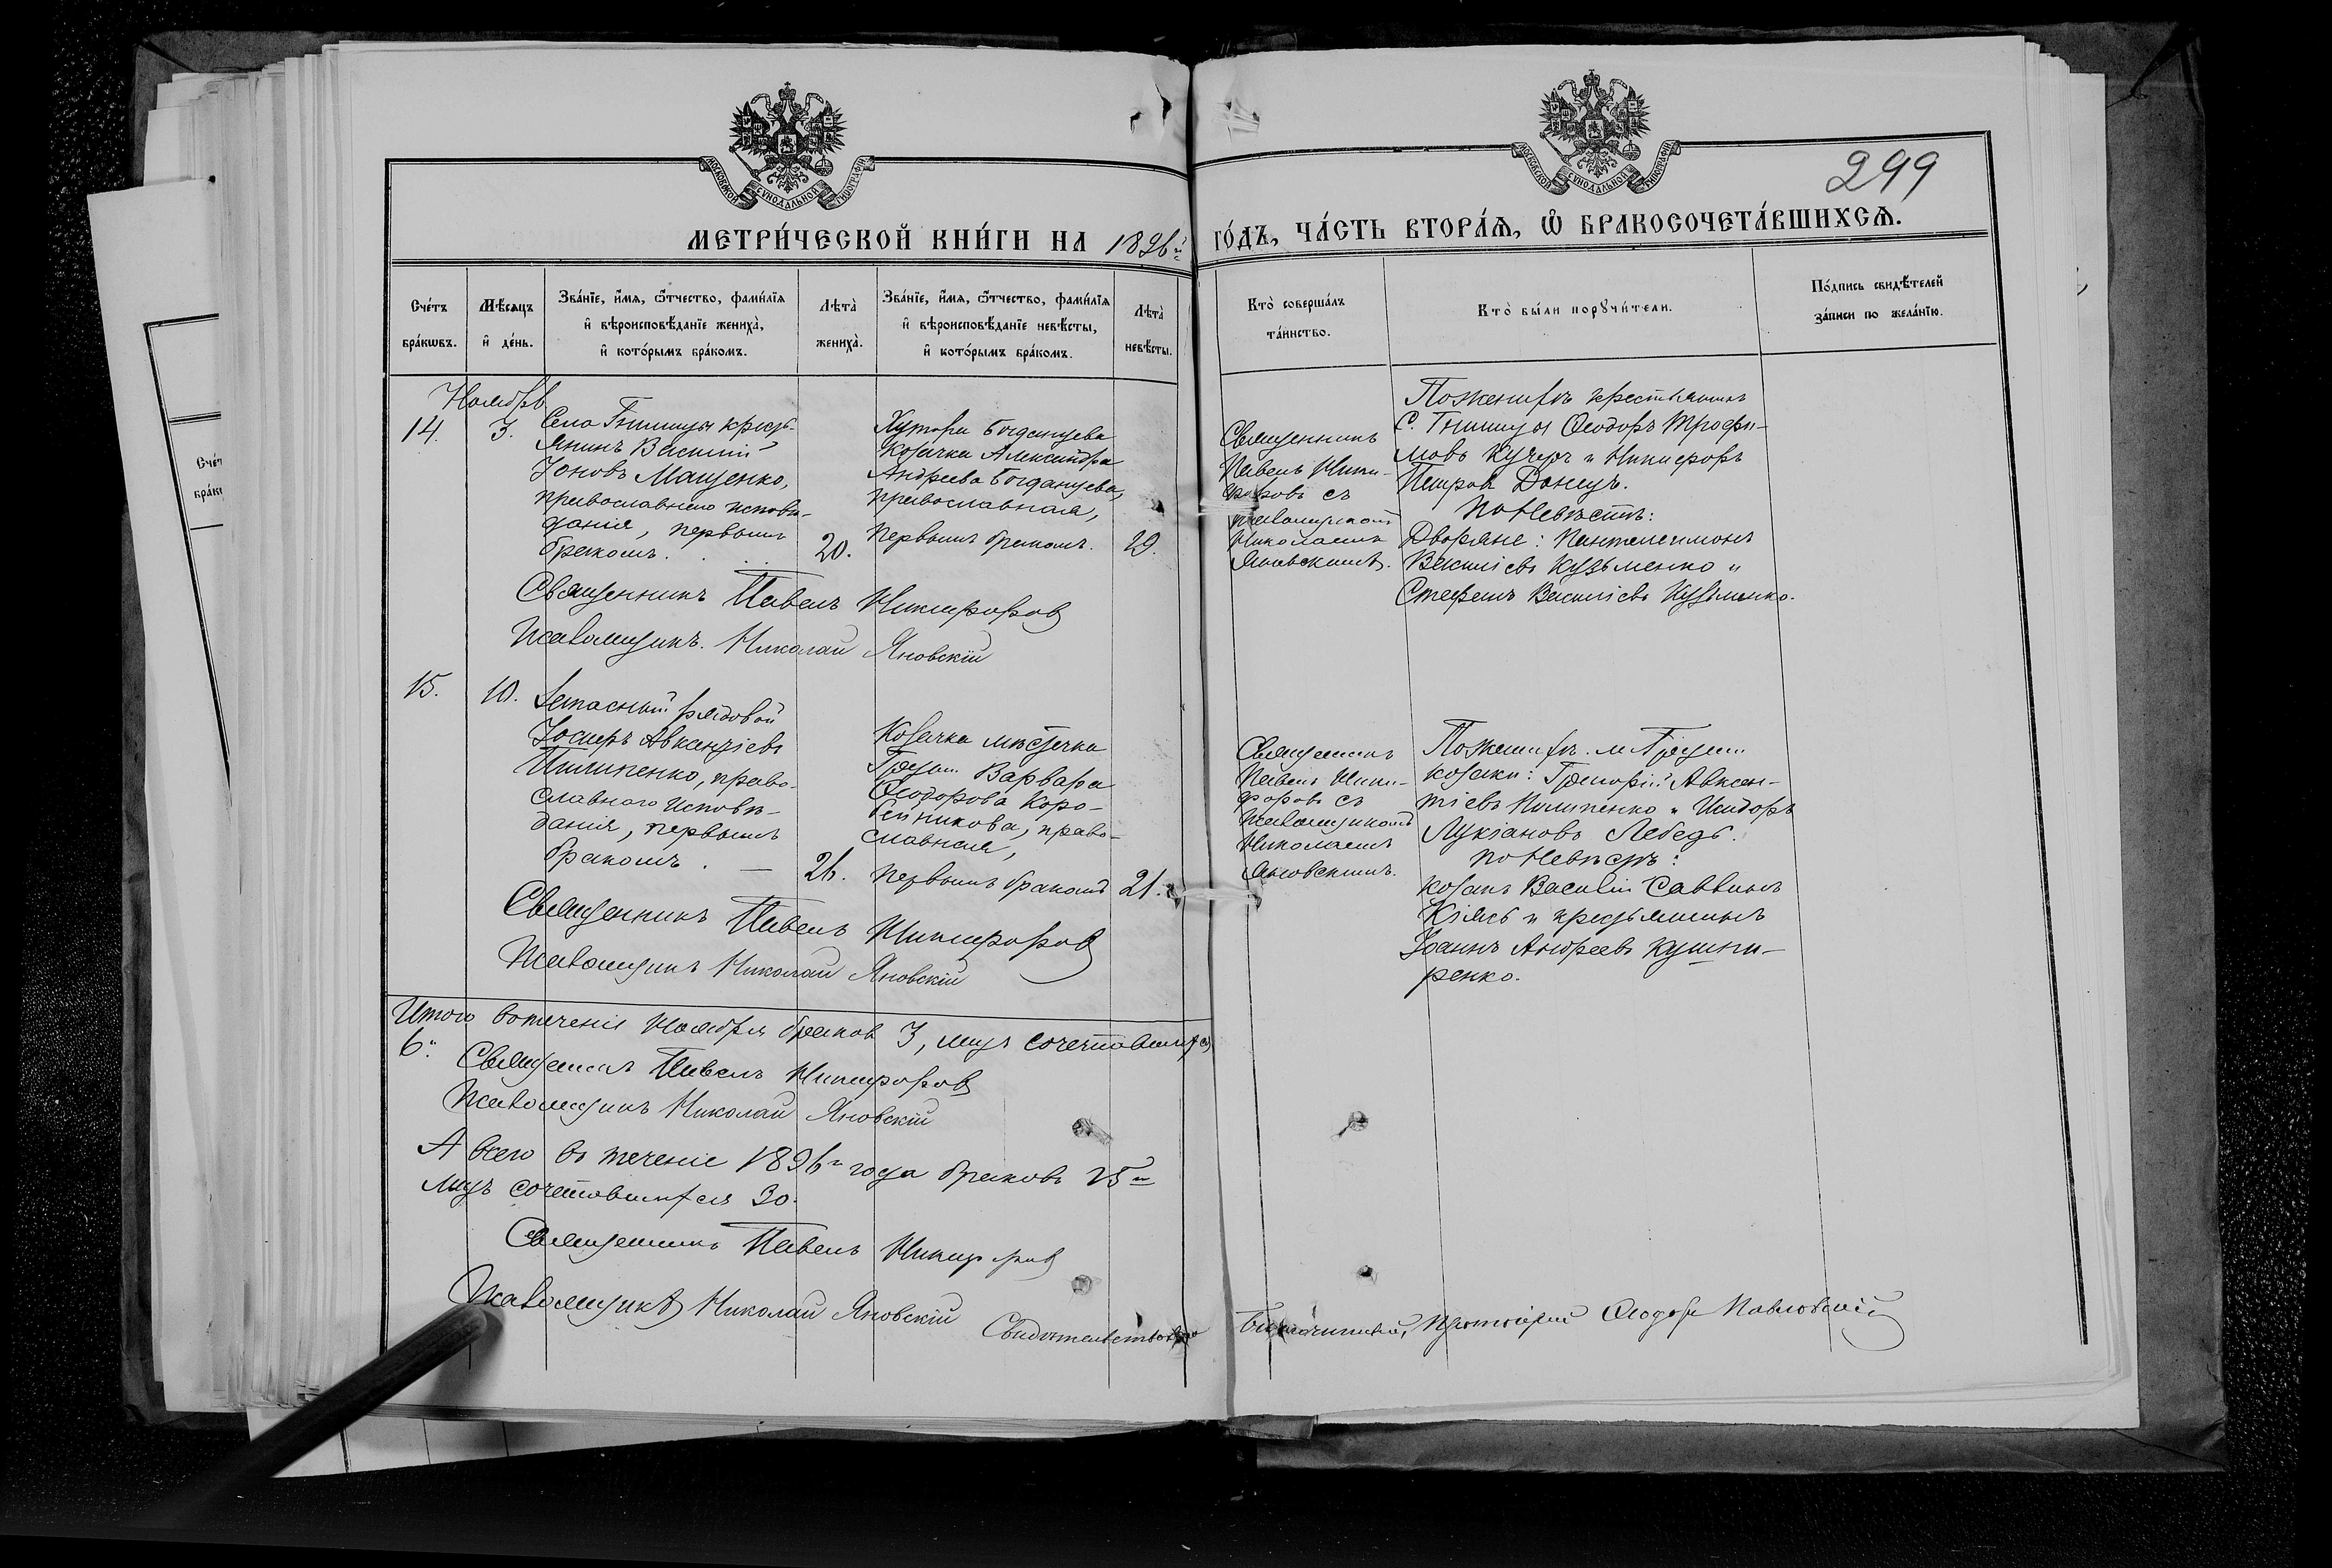 299
МЕТРИ́ЧЕСКОЙ КНИ́ГИ НА 1896й ГО́ДЪ, ЧА́СТЬ ВТОРА́Я, Ѡ БРАКОСОЧЕТА́ВШИХСЯ.
Сче́тъ бра́кѡвъ.
Мѣ́сяцъ и҆ де́нь.
Зва́нїе, и҆́мя, ѻ҆́тчество, фами́лїя
и҆ вѣроисповѣ́данїе жениха̀,
и҆ кото́рымъ бра́комъ.
Лѣта̀ жениха̀.
Зва́нїе, и҆́мя, ѻ҆́тчество, фами́лїя
и҆ вѣроисповѣ́данїе невѣ́сты,
и҆ кото́рымъ бра́комъ.
Лѣта̀ невѣ́сты.
Кто̀ соверша́лъ
та́инство.
Кто̀ бы́ли порꙋчи́тели.
По́дпись свидѣ́телей
за́писи по жела́нїю.
Ноябрь
14.
3.
Села Гнилицы кресть-
янинъ Василій
Іоновъ Мащенко,
православнаго исповѣ-
данія, первымъ
бракомъ.
20.
Хутора Богданцева
козачка Александра
Андреева Богданцева,
православная,
первымъ бракомъ.
29.
Священникъ
Павелъ Ники-
форовъ съ
псаломщикомъ
Николаемъ
Яновскимъ.
По женихѣ крестьянинъ
с. Гнилицы Ѳеодоръ Трофи-
мовъ Кучеръ и Никифоръ
Петровъ Донецъ.
По невѣстѣ:
Дворяне: Пантелеимонъ
Василіевъ Кузьменко и
Стефанъ Василіевъ Кузьменко.
Священникъ Павелъ Никифоровъ
Псаломщикъ Николай Яновскій
15.
10.
Запасный рядовой
Іосифъ Авксентіевъ
Пилипенко, право-
славнаго исповѣ-
данія, первымъ
бракомъ. —
26.
Козачка мѣстечка
Варвара
Ѳеодорова Коро-
бейникова, право-
славная,
первымъ бракомъ
21.
Священникъ
Павелъ Ники-
форовъ съ
псаломщикомъ
Николаемъ
Яновскимъ.
По женихѣ м.
козаки: Григорій Авксен-
тіевъ Пилипенко и Исидоръ
Лукіановъ Лебедь.
По невѣстѣ:
козакъ Василій Саввинъ
Кіясь и крестьянинъ
Іоаннъ Андреевъ Кушни-
ренко.
Священникъ Павелъ Никифоровъ
Псаломщикъ Николай Яновскій
Итого въ теченіе Ноября браковъ 3, лицъ сочетавшихся
6.
Священникъ Павелъ Никифоровъ
Псаломщикъ Николай Яновскій
А всего въ теченіе 1896го года браковъ 15ть
лицъ сочетавшихся 30.
Священникъ Павелъ Никифоровъ
Псаломщикъ Николай Яновскій
Свидѣтельствовалъ Благочинный, Протоіерей Ѳеодоръ Павловскій